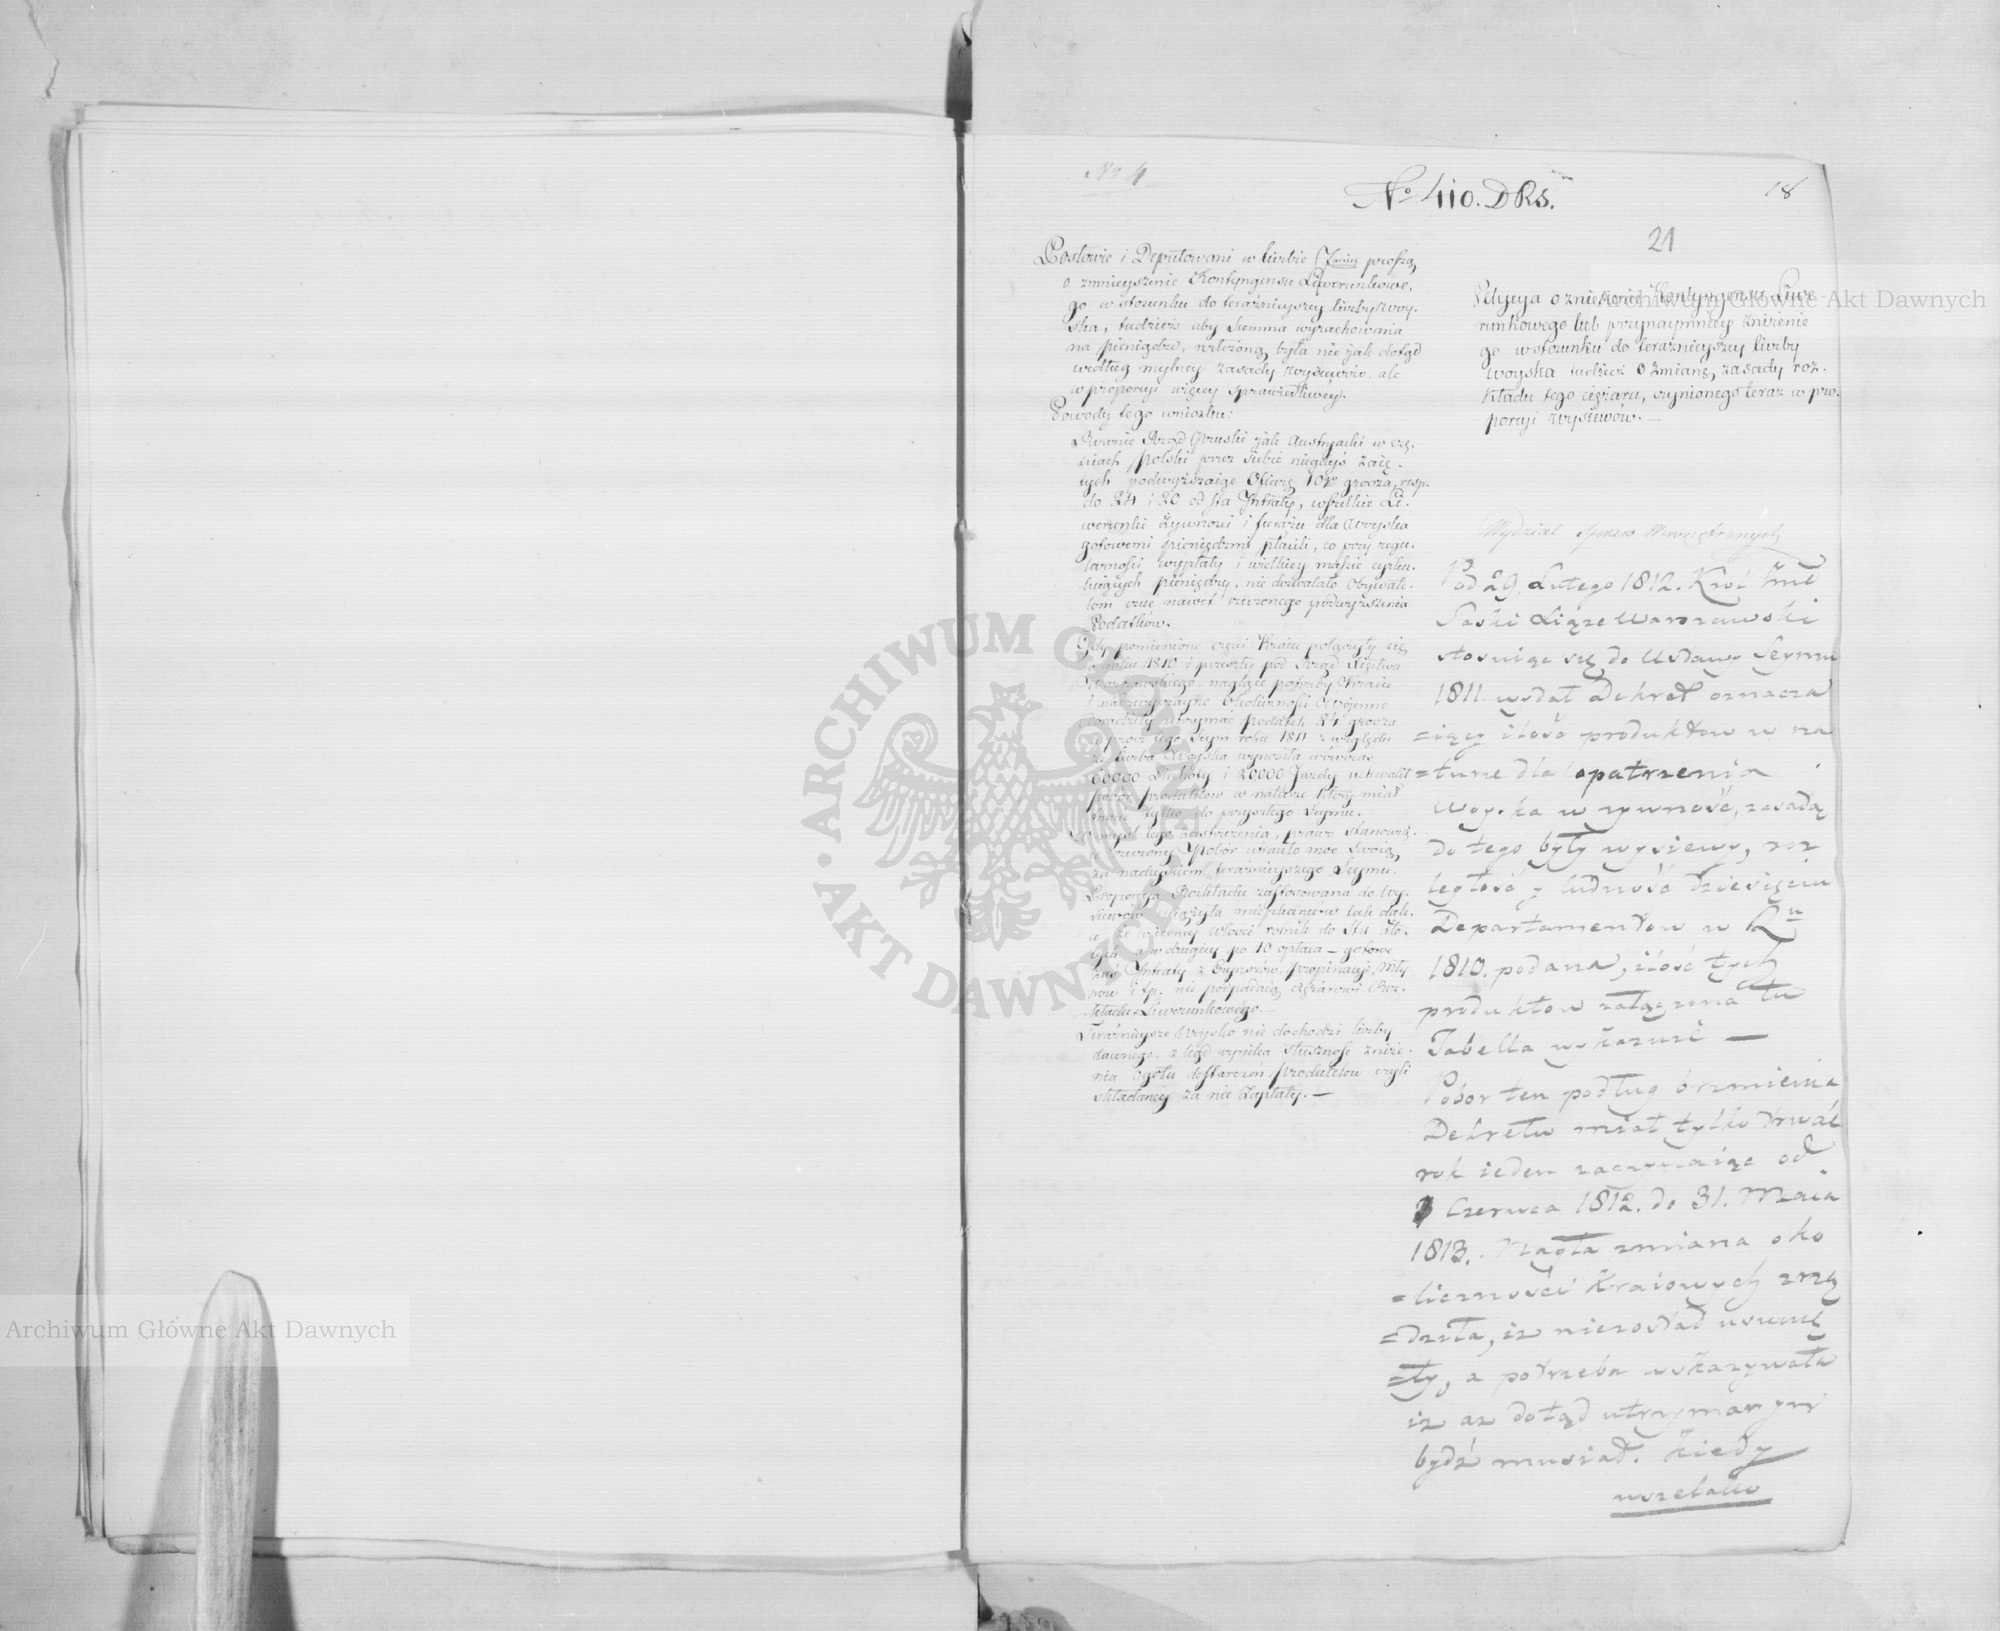 Nro 4
No 410. DRS.
18
21
Posłowie i Deputowani w liczbie 7miu proszą
o zmnieyszenie Kontyngensu Liwerunkowe-
go w stosunku do teraźnieyszey liczby woy-
ska, tudzież aby Summa wyrachowana
na pieniądze, rozłożoną była nie jak dotąd
według mylney zasady wysiewów, ale
w proporcyi więcey sprawiedliwéy.
Powody tego wniosku:
Równie Rząd Pruski jak Austryacki w czę-
ściach Polski przez siebie niegdyś zaię-
tych podwyższaiąc Ofiarę 10go grosza, resp.
do 24 i 20 od sta Intraty, wszelkie Li-
werunki żywności i furażu dla woyska
gotowemi pieniędzmi płacili, co przy regu-
larności wypłaty i wielkiey massie cyrku-
luiących pieniędzy, nie dozwalało Obywate-
lom czuć nawet rzeczonego podwyższenia
Podatków.
Gdy pomienione części Kraiu połączyły się
w roku 1810 i przeszły pod Rząd Xięstwa
Warszawskiego, nagłe potrzeby Kraiu
i nadzwyczayne Okoliczności woienne
utrzymać podatek 24 grosza
przez Seym roku 1811 z względu
że liczba Woyska wynosiła wówczas
60000 Piechoty i 20000 Jazdy uchwalił
pobór produktów w naturze który miał
trwać tylko do przyszłego Seymu.
W myśl tego zastrzeżenia, prawo stanowią-
ce rzeczony Pobór utraciło moc swoią
za nadeyściem teraźnieyszego Seymu.
Proporcya Rozkładu zastosowana do wy-
siewów mieszkańców tak dale-
ce, że w jedney włości rolnik do Stu zło-
tych a w drugiey po 10 opłaca — gotowe
zaś Intraty z Czynszów, propinacyi, mły-
nów i t.p. nie podpadaią ciężarowi Roz-
kładu Liwerunkowego. —
Teraźnieysze Woysko nie dochodzi liczby
dawnego, z tąd wynika słuszność zniże-
nia Ogółu dostarczeń Produktów czyli
składaney za nie Zapłaty. —
Petycya o zniesienie Kontyngensu Liwe-
runkowego lub przynaymniey zniżenie
go w stosunku do teraźnieyszey liczby
woyska tudzież o zmianę zasady roz-
kładu tego ciężaru, czynionego teraz w pro-
porcyi wysiewów. —
Wydział Spraw Wewnętrznych
Pod 29. Lutego 1812. Król Jmć
Saski Xiąże Warszawski
stosuiąc się do Ustawy Seymu
1811. wydał Dekret oznacza
=iący ilość produktów w na
=turze dla opatrzenia
Woyska w żywność, zasadą
do tego były wysiewy, roz
ległość y ludność dziesięciu
Departamentów w Rku
1810. podana, ilość tych
produktów załączona tu
Tabella wskazuie —
Pobor ten podług brzmienia
Dekretu miał tylko trwać
rok ieden zaczynaiąc od
1 Czerwca 1812. do 31. Maia
1813. Nagła zmiana oko
=liczności Kraiowych zrzą
=dziła, iż niezostał usunię
=ty, a potrzeba wskazywała
iż aż dotąd utrzymanym
bydź musiał. Kiedy
wszelako
Archiwum Główne Akt Dawnych
Archiwum Główne Akt Dawnych
ARCHIWUM GŁÓWNE • AKT DAWNYCH •